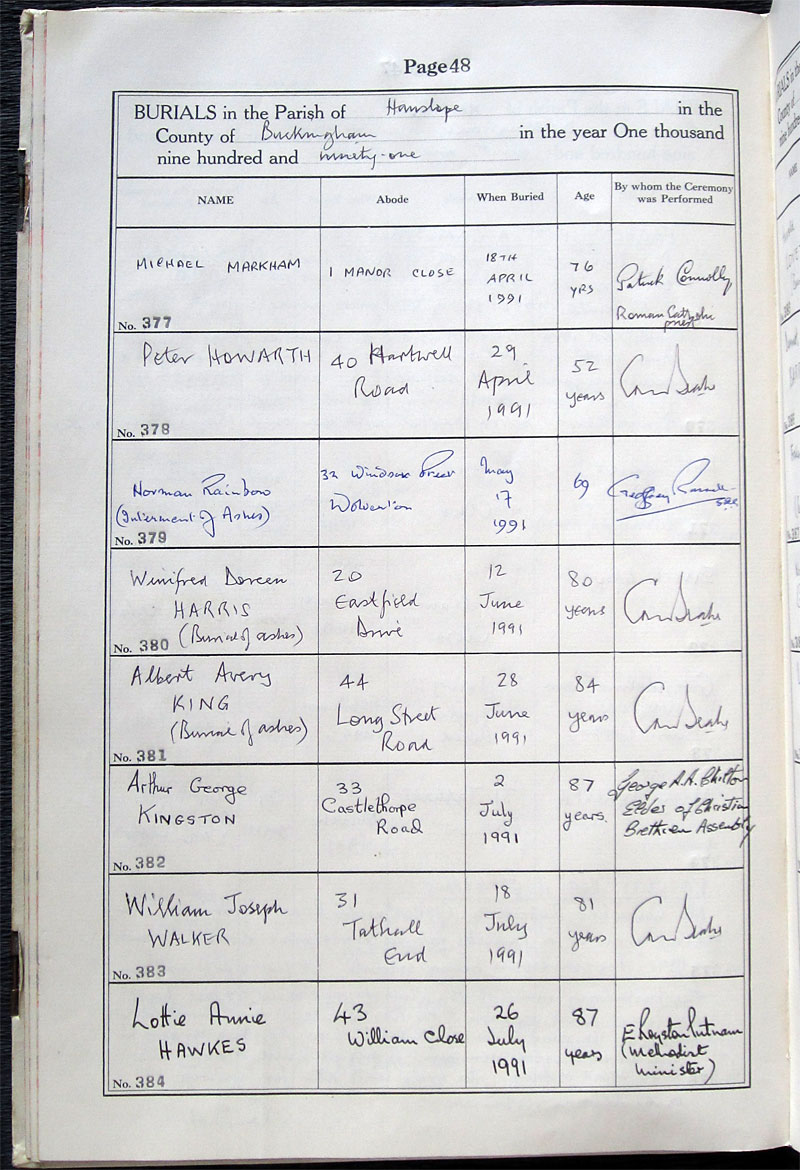 Page 48
BURIALS in the Parish of Hanslope in the
County of Buckingham in the year One thousand
nine hundred and ninety-one
NAME Abode When Buried Age By whom the Ceremony was Performed
MICHAEL MARKHAM
1 MANOR CLOSE
18TH
APRIL
1991
76
YRS
Patrick Connolly
Roman Catholic
priest
No. 377
Peter HOWARTH
40 Hartwell
Road
29
April
1991
52
years
No. 378
Norman Rainbow
(Interment of Ashes)
32 Windsor Street
Wolverton
May
17
1991
69
Geoffrey
No. 379
Winifred Doreen
HARRIS
(Burial of ashes)
20
Eastfield
Drive
12
June
1991
80
years
No. 380
Albert Avery
KING
(Burial of ashes)
44
Long Street
Road
28
June
1991
84
years
No. 381
Arthur George
KINGSTON
33
Castlethorpe
Road
2
July
1991
87
years.
George A.A. Chilton
Elder of Christian
Brethren Assembly
No. 382
William Joseph
WALKER
31
Tathall
End
18
July
1991
81
years
No. 383
Lottie Annie
HAWKES
43
William Close
26
July
1991
87
years
E Royston Putnam
(Methodist
minister)
No. 384